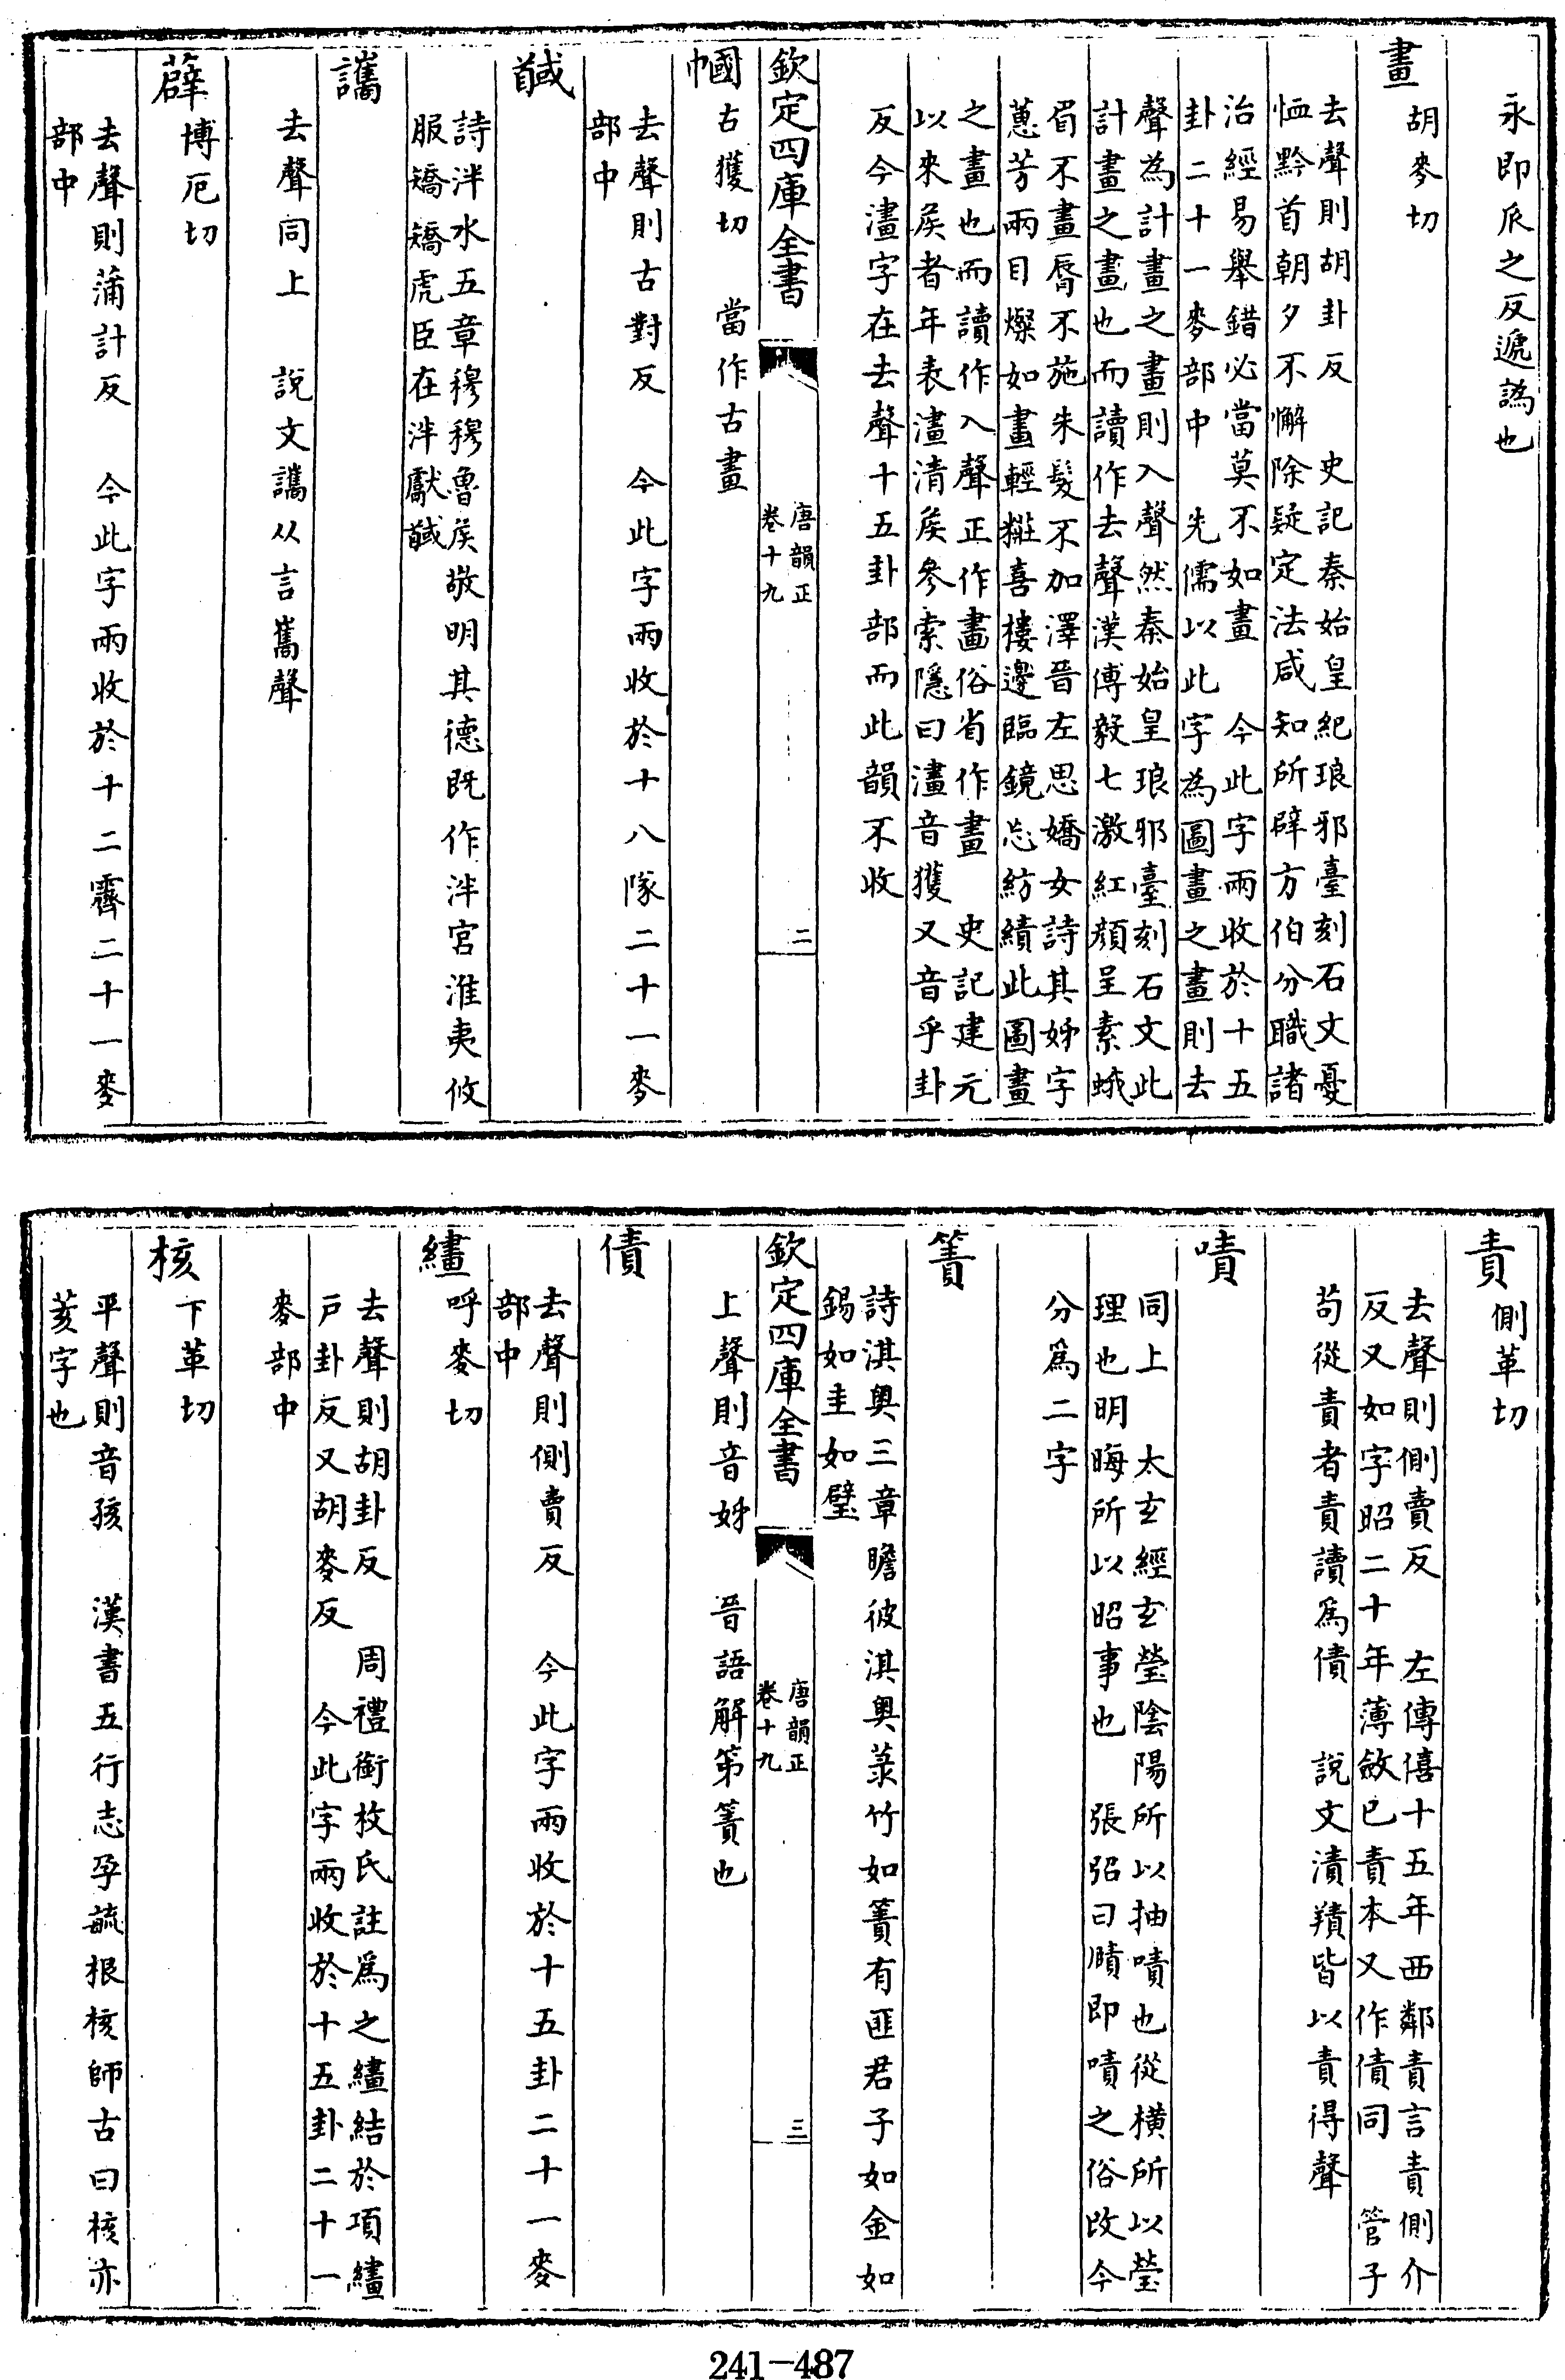 永即𠂢之反遞譌也
畫
胡麥切
去聲則胡卦反　史記秦始皇紀琅邪臺刻石文憂
恤黔首朝夕不懈除疑定法咸知所辟方伯分職諸
治經易舉錯必當莫不如畫　今此字兩收於十五
卦二十一麥部中　先儒以此字為圖畫之畫則去
聲為計畫之畫則入聲然秦始皇琅邪臺刻石文此
計畫之畫也而讀作去聲漢傅毅七激紅顏呈素蛾
眉不畫脣不施朱髮不加澤晉左思嬌女詩其姊字
蕙芳兩目燦如畫輕糚喜樓邊臨鏡忘紡績此圖畫
之畫也而讀作入聲正作畫俗省作畫　史記建元
以來矦者年表澅清矦參索隱曰澅音獲又音乎卦
反今澅字在去聲十五卦部而此韻不收
欽定四庫全書
唐韻正
卷十九
二
幗
古獲切　當作古畫
去聲則古對反　今此字兩收於十八隊二十一麥
部中
馘
詩泮水五章穆穆魯矦敬明其德既作泮宮淮夷攸
服矯矯虎臣在泮獻馘
讗
去聲同上　說文讗从言雟聲
薜
博厄切
去聲則蒲計反　今此字兩收於十二霽二十一麥
部中
責
側革切
去聲則側賣反　左傳僖十五年西鄰責言責側介
反又如字昭二十年薄斂已責本又作債同　管子
茍從責者責讀爲債　說文漬𦟜皆以責得聲
嘖
同上　太玄經玄瑩陰陽所以抽嘖也從橫所以瑩
理也明晦所以昭事也　張弨曰賾即嘖之俗改今
分爲二字
簀
詩淇奥三章瞻彼淇奥菉竹如簀有匪君子如金如
錫如圭如璧
欽定四庫全書
唐韻正
卷十九
三
上聲則音姊　晉語解第簀也
債
去聲則側賣反　今此字兩收於十五卦二十一麥
部中
繣
呼麥切
去聲則胡卦反　周禮銜枚氏註爲之繣結於項繣
戶卦反又胡麥反　今此字兩收於十五卦二十一
麥部中
核
下革切
平聲則音孩　漢書五行志孕毓根核師古曰核亦
荄字也
241-487